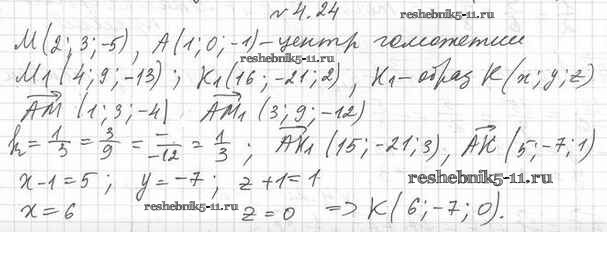 №4.24
reshebnik5-11.ru
M(2;3;-5), A(1;0;-1) - центр гомотетии
reshebnik5-11.ru
M₁(4;9;-13); K₁(16;-21;2), K₁ - образ K(x;y;z)
AM (1;3;-4) AM₁ (3;9;-12)
k = 1/3 = 3/9 = -/-12 = 1/3; AK₁ (15;-21;3), AK (5;-7;1)
x-1=5; y=-7; z+1=1 reshebnik5-11.ru
x=6 reshebnik5-11.ru z=0 => K(6;-7;0).